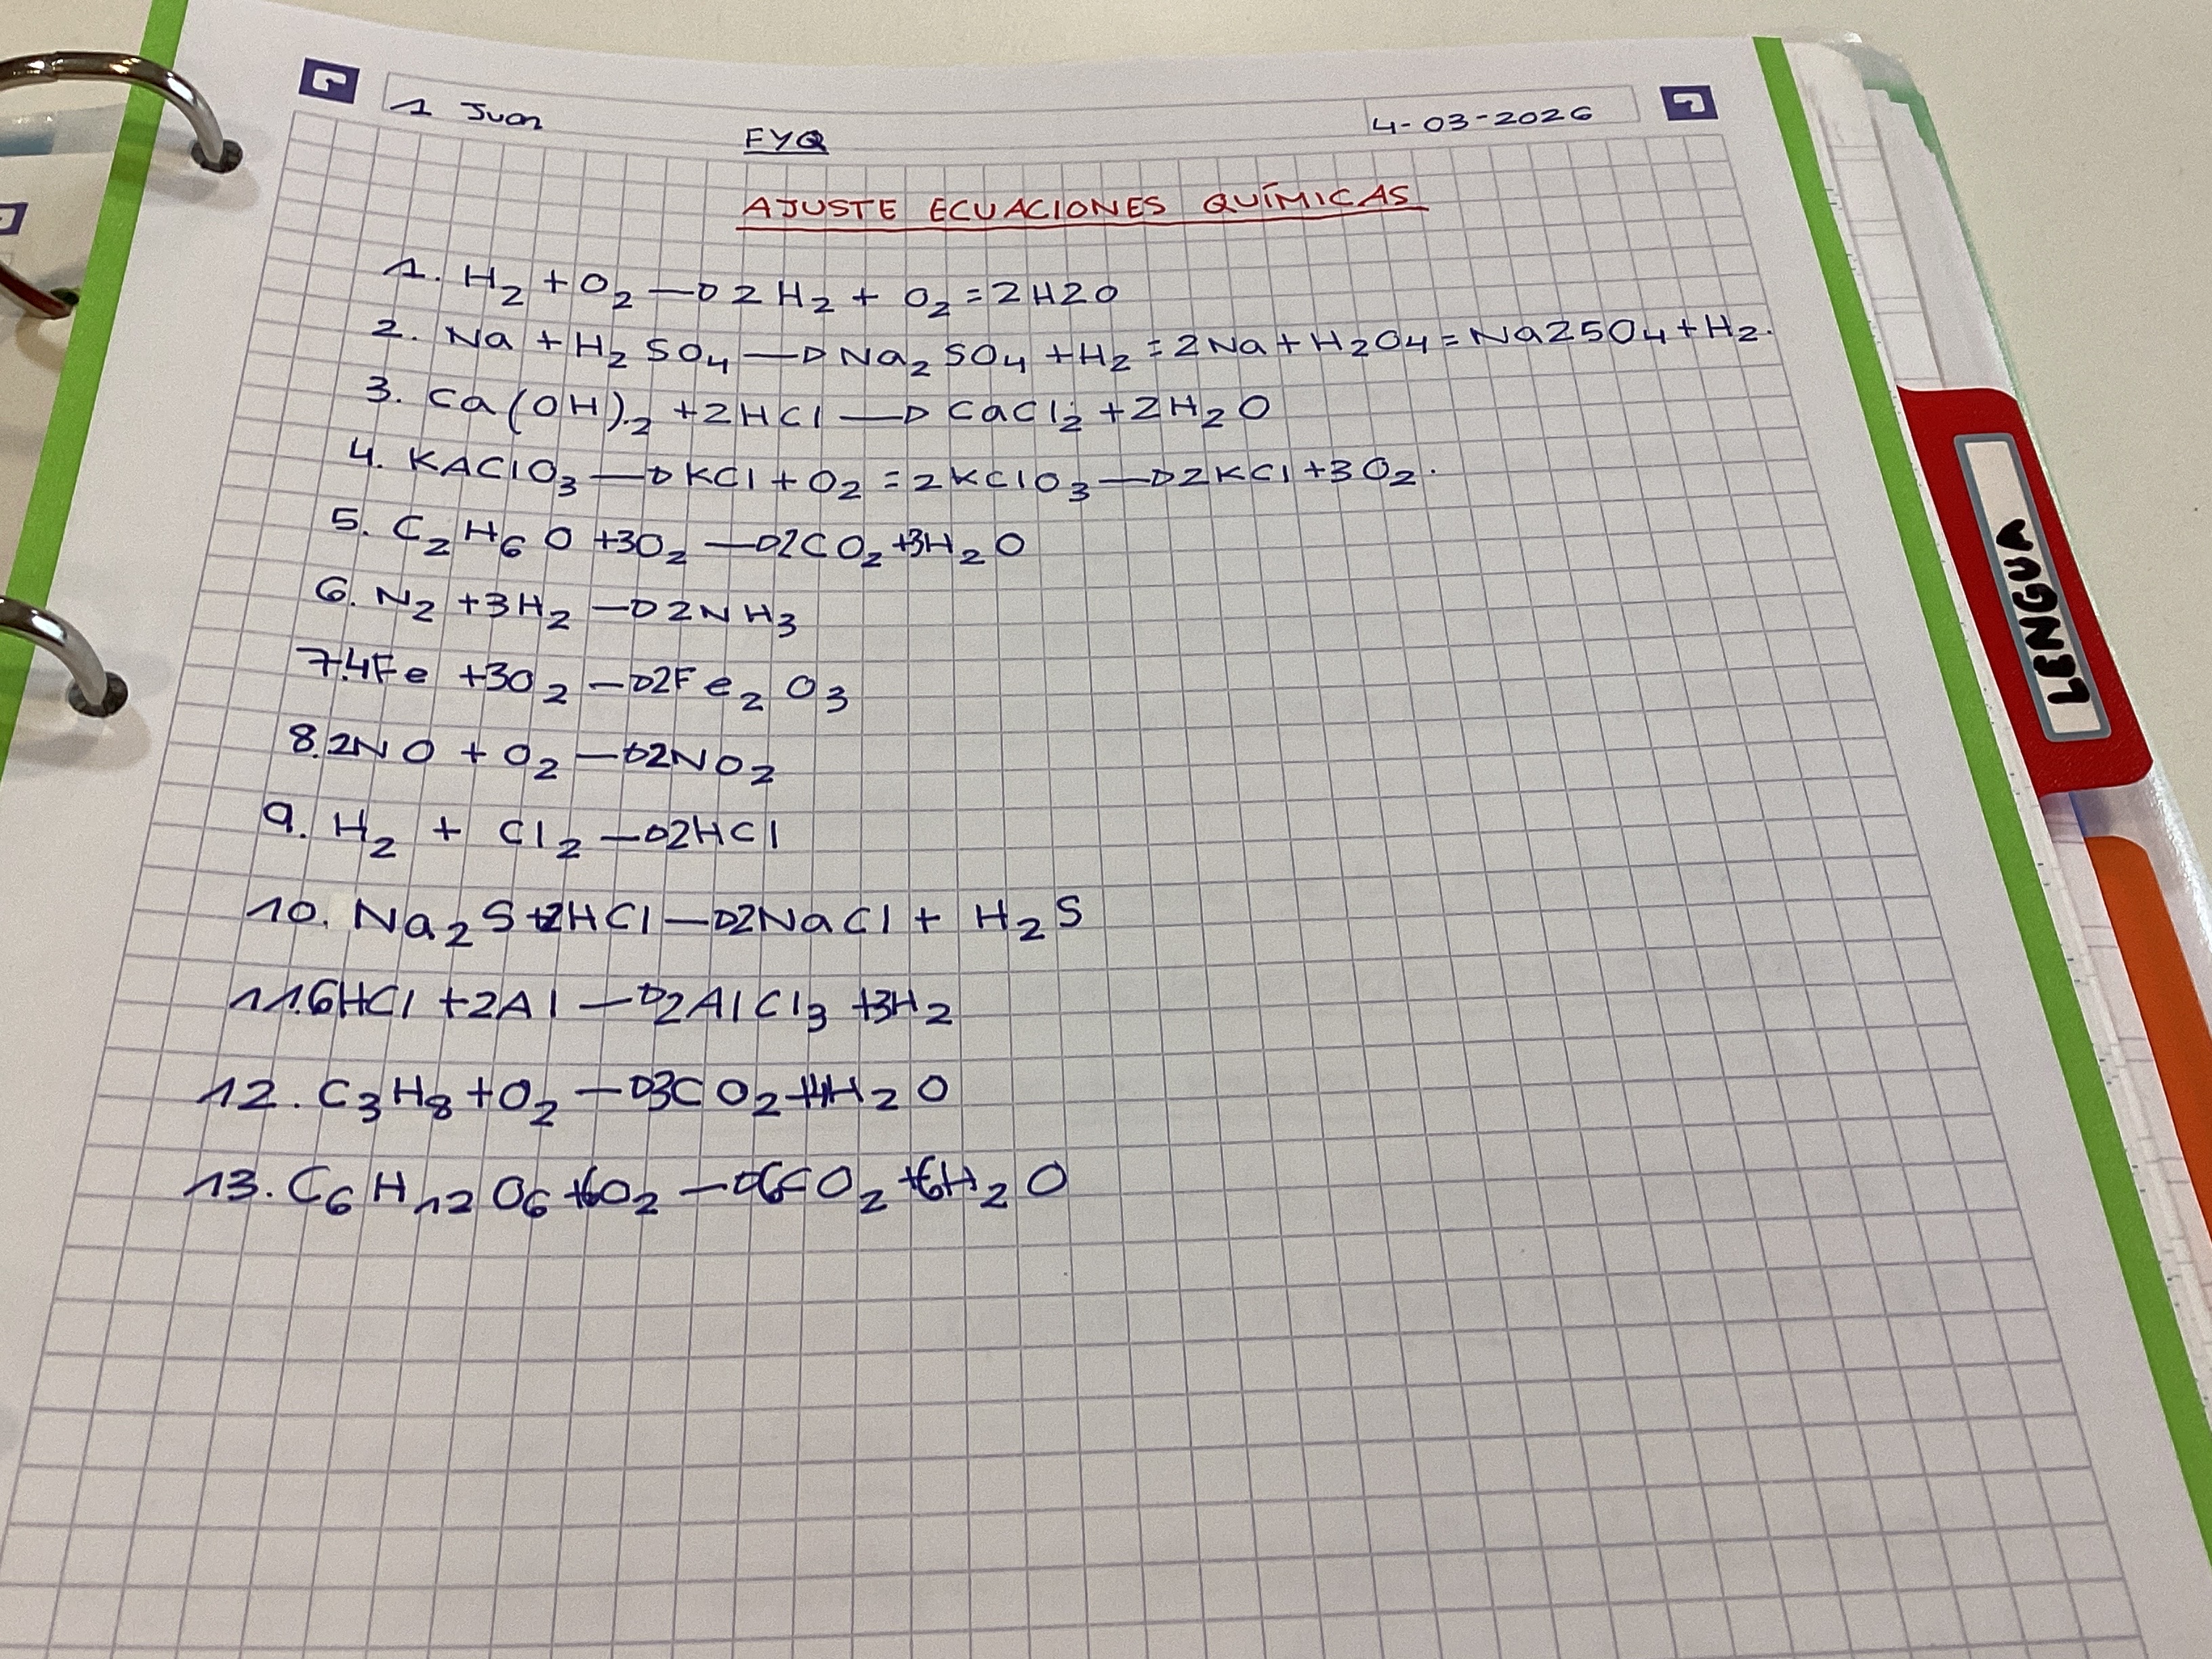 1 Juan
4-03-2026
FYQ
AJUSTE ECUACIONES QUÍMICAS
1. H₂ + O₂ → 2 H₂ + O₂ = 2H2O
2. Na + H₂ SO₄ → Na₂ SO₄ + H₂ = 2Na + H₂O₄ = Na2SO₄ + H₂.
3. Ca(OH)₂ + 2HCl → CaCl₂ + 2H₂O
4. KAClO₃ → KCl + O₂ = 2KClO₃ → 2KCl + 3O₂.
5. C₂H₆O + 3O₂ → 2CO₂ + 3H₂O
6. N₂ + 3H₂ → 2NH₃
7. 4Fe + 3O₂ → 2Fe₂O₃
8. 2NO + O₂ → 2NO₂
9. H₂ + Cl₂ → 2HCl
10. Na₂S + 2HCl → 2NaCl + H₂S
11. 6HCl + 2Al → 2AlCl₃ + 3H₂
12. C₃H₈ + O₂ → 3CO₂ + 4H₂O
13. C₆H₁₂O₆ + 6O₂ → 6CO₂ + 6H₂O
LENGUA